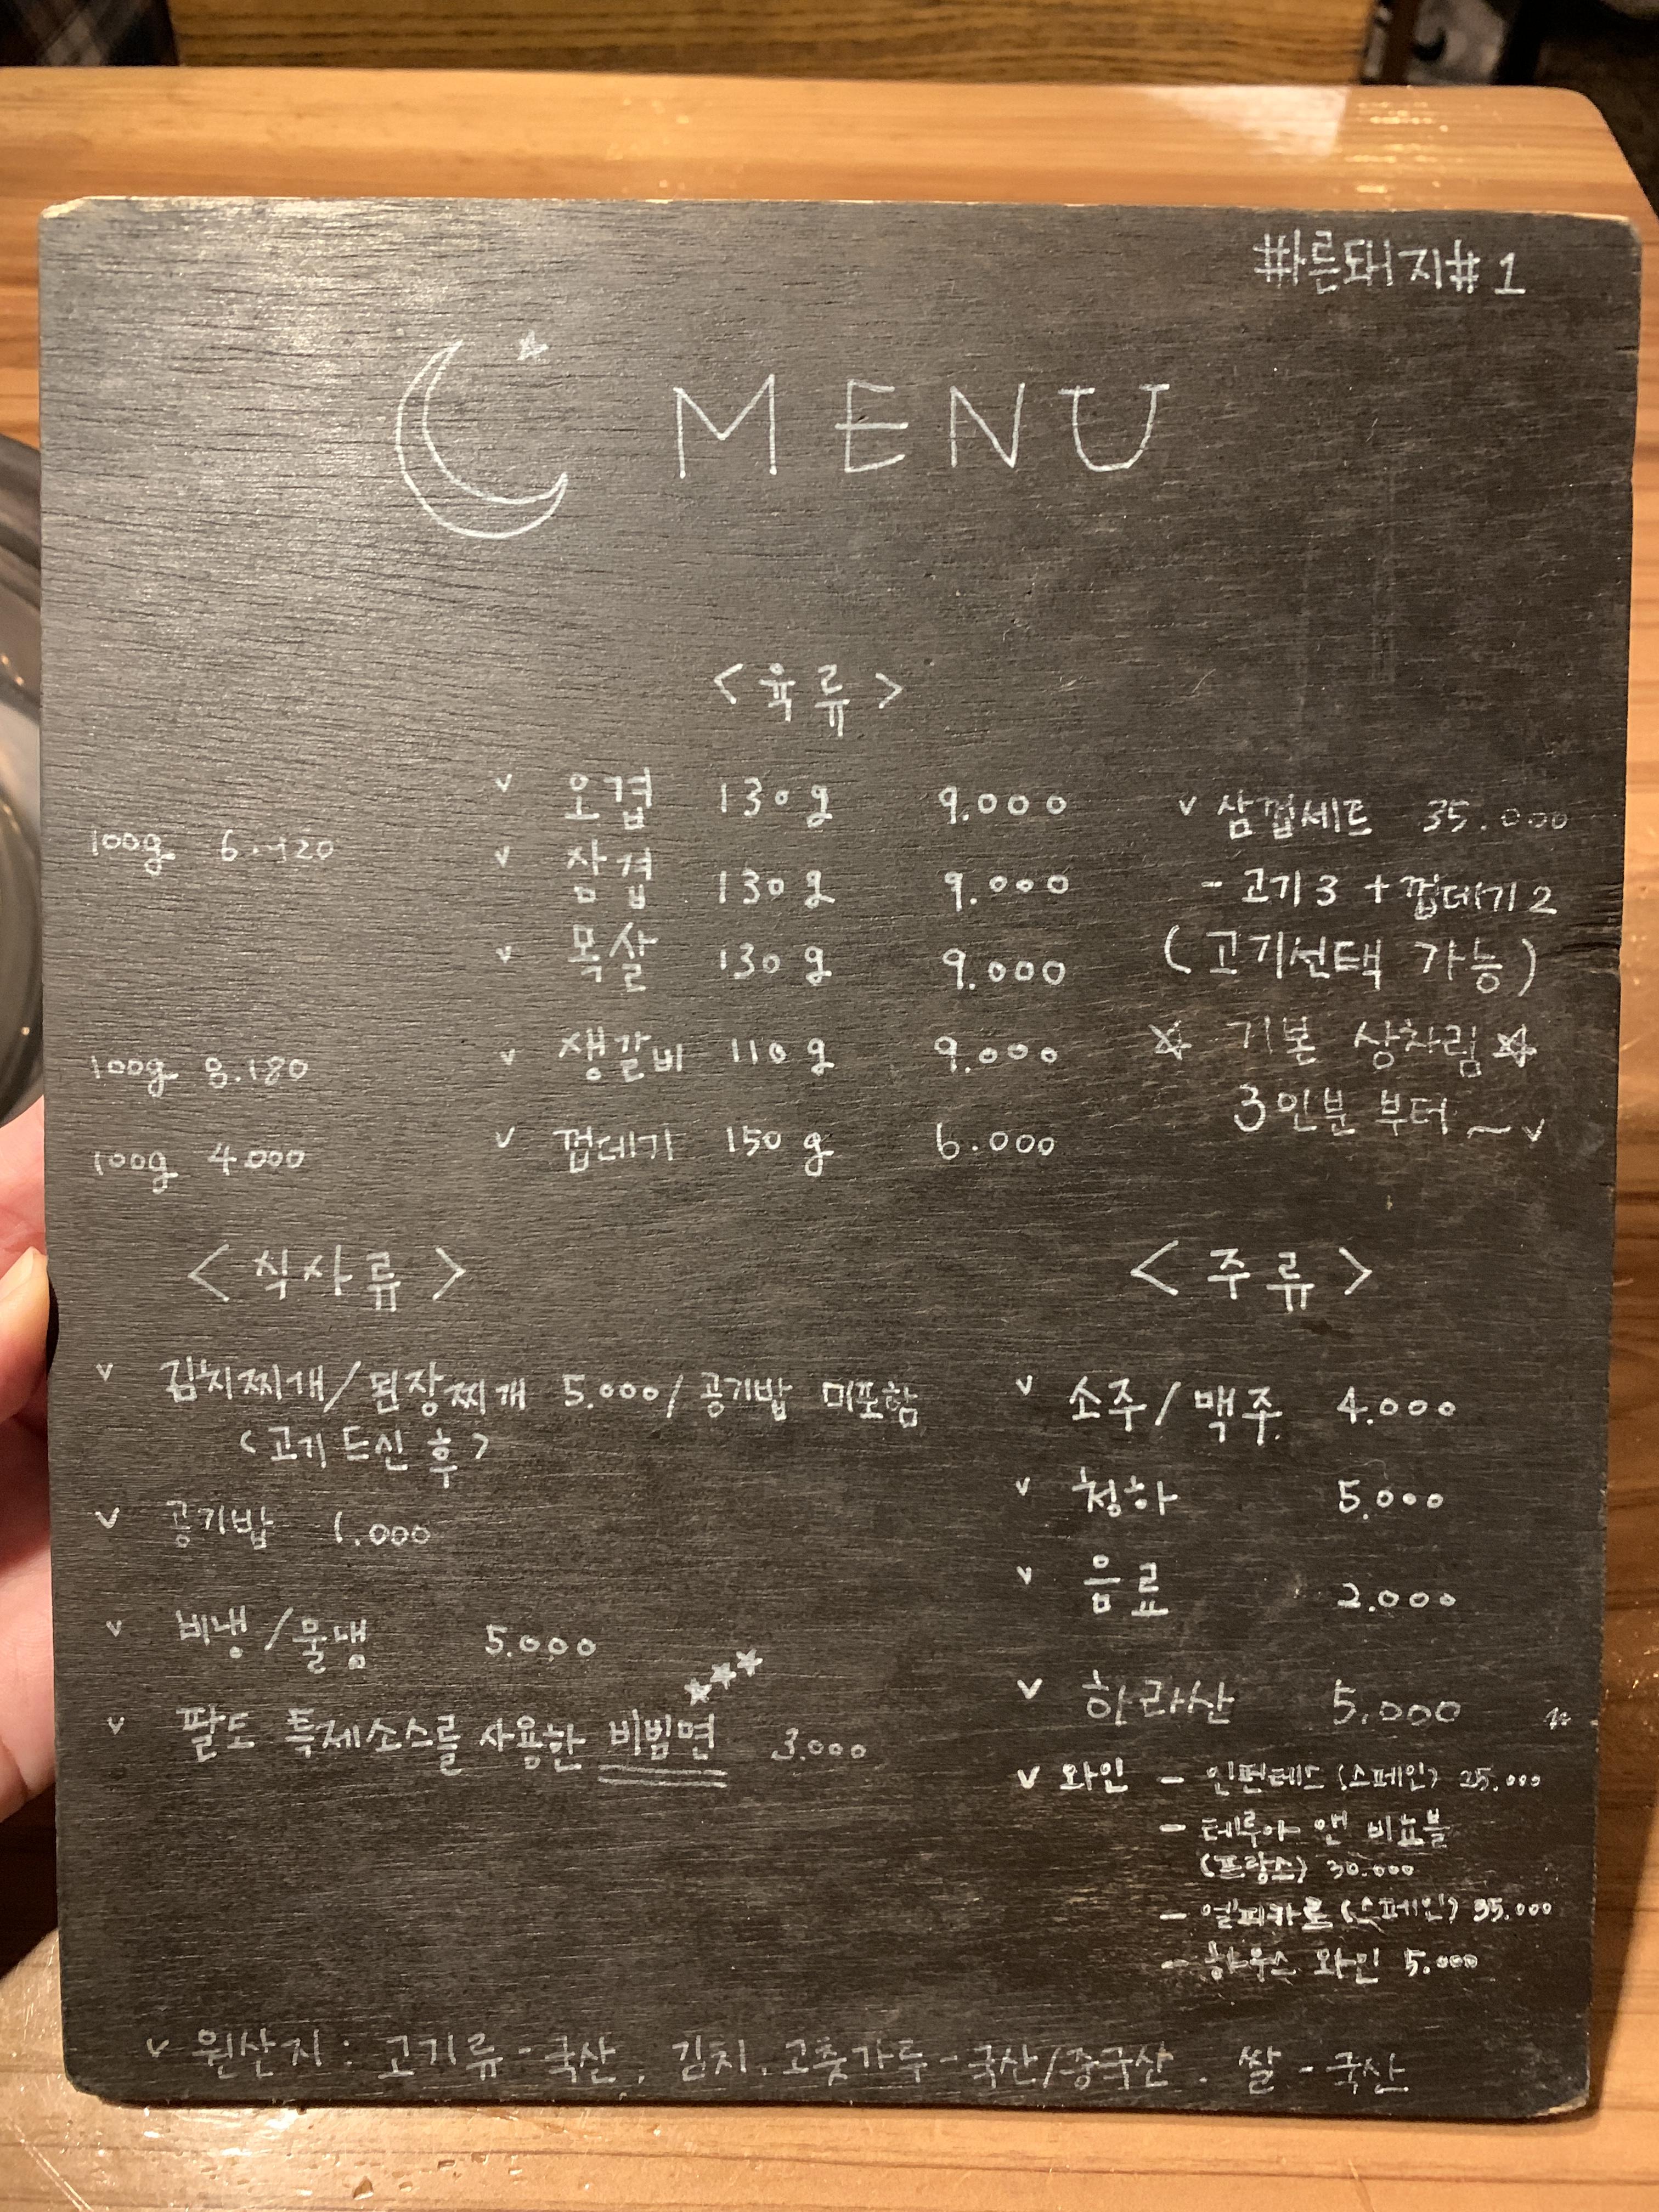 #바른돼지#1
MENU
<육류>
100g 6.920
v 오겹 130g 9.000
v 삼겹 130g 9.000
v 목살 130g 9.000
100g 8.180
v 생갈비 110g 9.000
100g 4.000
v 껍데기 150g 6.000
v 삼껍세트 35.000
- 고기3 + 껍데기2
(고기선택 가능)
☆ 기본 상차림 ☆
3인분 부터 ~ v
<식사류>
v 김치찌개/된장찌개 5.000/공기밥 미포함
<고기 드신 후>
v 공기밥 1.000
v 비냉/물냉 5.000
★★★
v 팔도 특제소스를 사용한 비빔면 3.000
<주류>
v 소주/맥주 4.000
v 청하 5.000
v 음료 2.000
v 한라산 5.000
v 와인 - 인펀테스 (스페인) 25.000
- 테루아 앤 비뇨블
(프랑스) 30.000
- 엘피카로 (스페인) 35.000
- 하우스 와인 5.000
v 원산지 : 고기류 - 국산, 김치, 고춧가루 - 국산/중국산. 쌀 - 국산